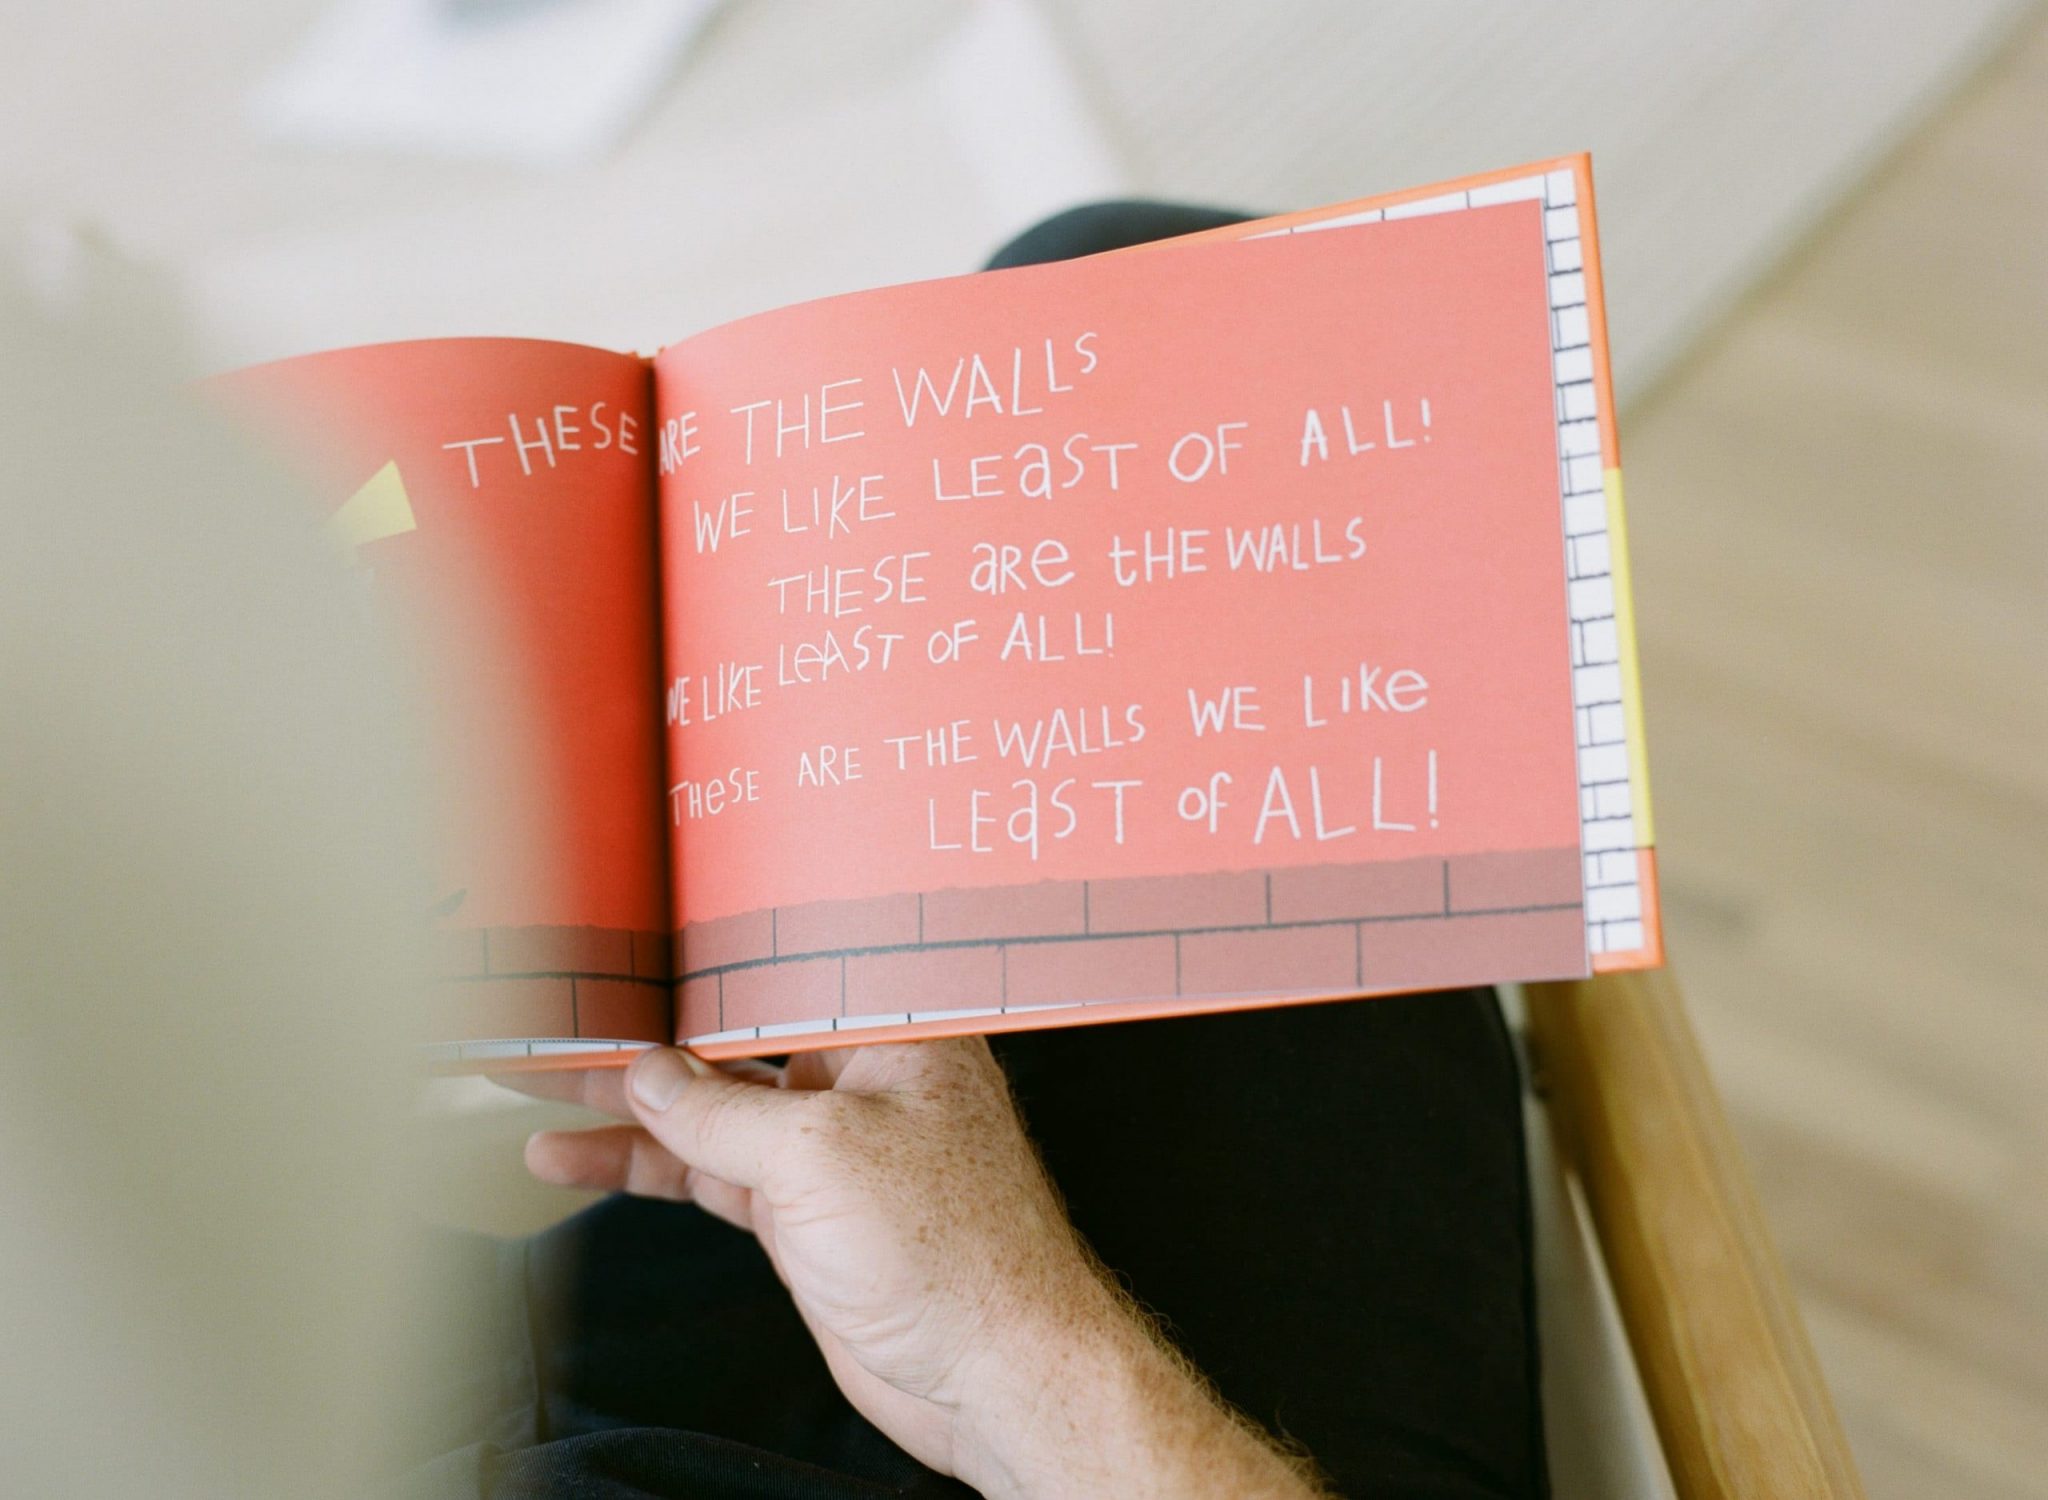 THESE ARE THE WALLS
WE LIKE LEaST OF ALL!
THESE aRe tHE WALLS
WE LIKE LeAST OF ALL!
THeSE ARE THE WALLS WE LIKe
LEaST of ALL!